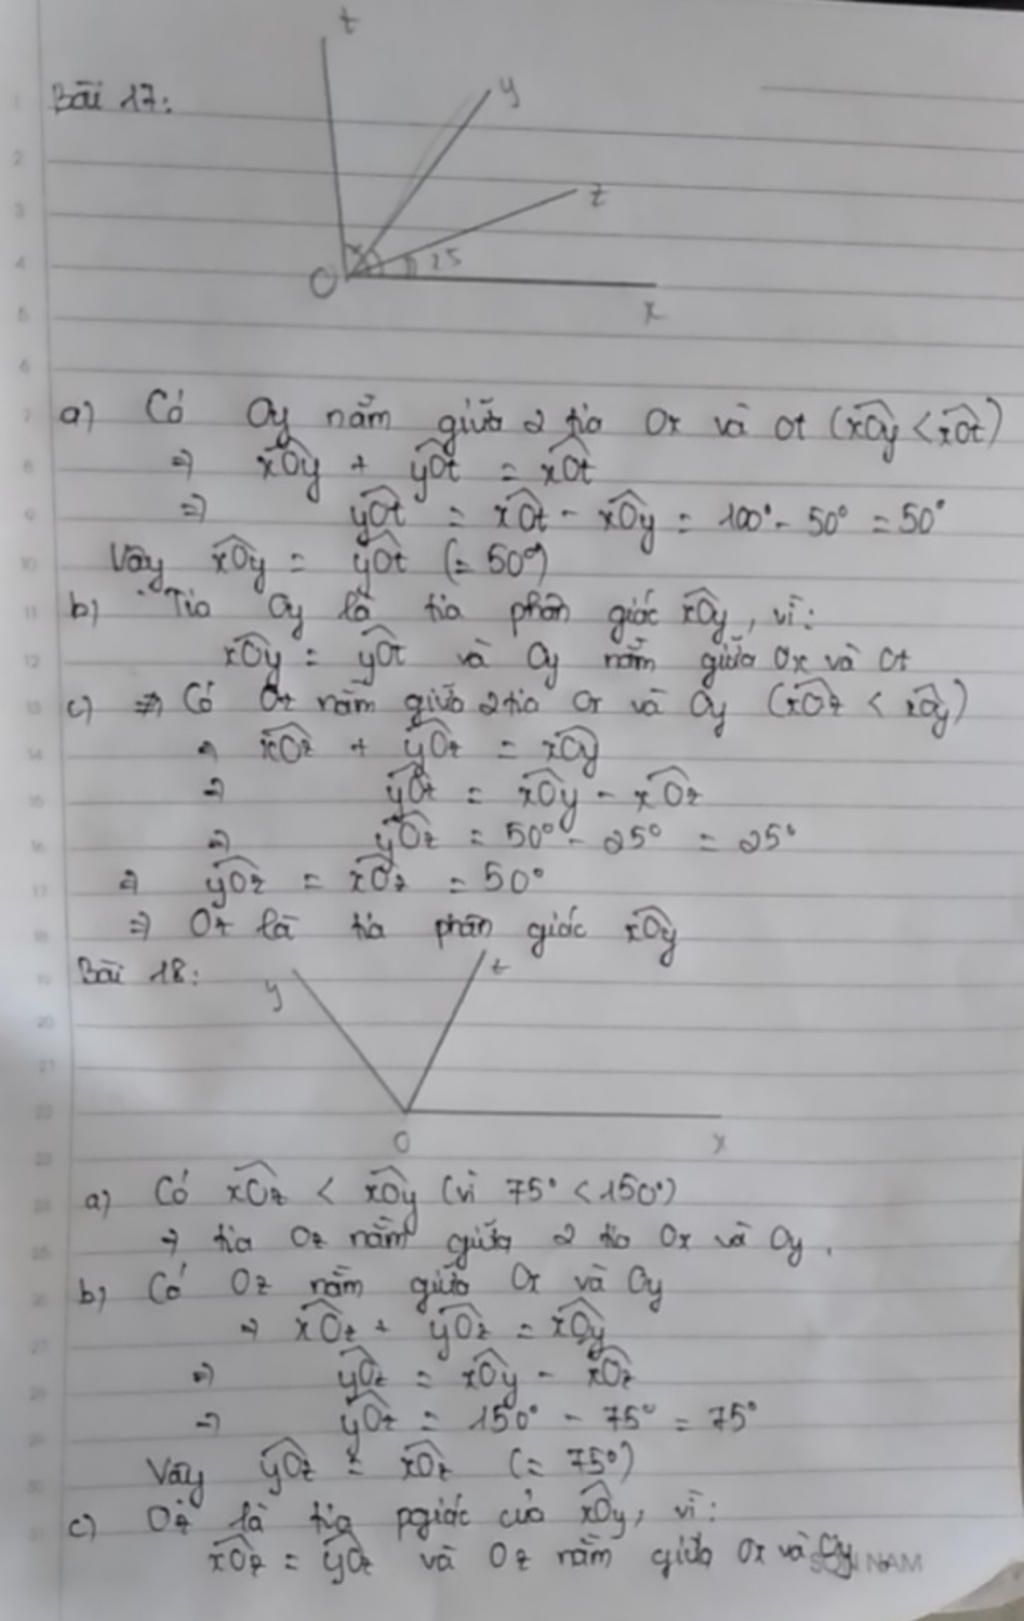 t
Bài 17:
y
z
25
O
x
a) Có Oy nằm giữa 2 tia Ox và Ot (xOy < xOt)
=> xOy + yOt = xOt
=> yOt = xOt - xOy = 100° - 50° = 50°
Vậy xOy = yOt (= 50°)
b) Tia Oy là tia phân giác xOy, vì:
xOy = yOt và Oy nằm giữa Ox và Ot
c) => Có Oz nằm giữa 2 tia Ox và Oy (xOz < xOy)
=> xOz + yOz = xOy
=> yOz = xOy - xOz
=> yOz = 50° - 25° = 25°
=> yOz = xOz = 50°
=> Oz là tia phân giác xOy
Bài 18:
y
z
O
x
a) Có xOz < xOy (vì 75° < 150°)
=> tia Oz nằm giữa 2 tia Ox và Oy.
b) Có Oz nằm giữa Ox và Oy
=> xOz + yOz = xOy
=> yOz = xOy - xOz
=> yOz = 150° - 75° = 75°
Vậy yOz = xOz (= 75°)
c) Oz là tia pgiác của xOy, vì:
xOz = yOz và Oz nằm giữa Ox và Oy